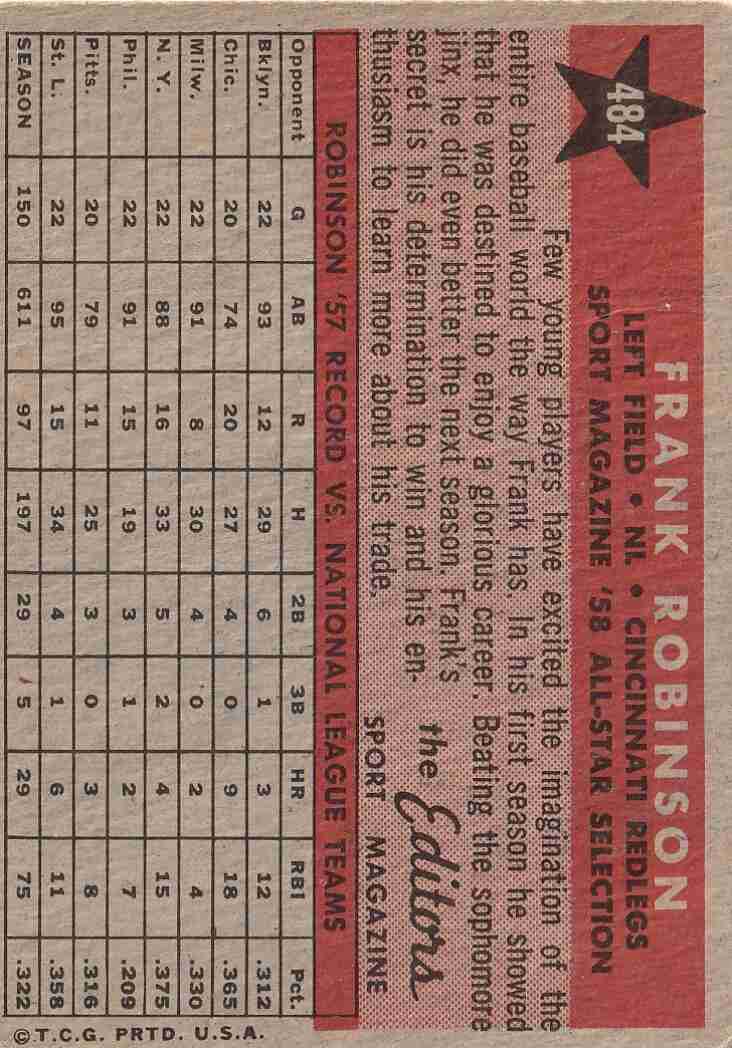 484
FRANK ROBINSON
LEFT FIELD • NL • CINCINNATI REDLEGS
SPORT MAGAZINE '58 ALL-STAR SELECTION
Few young players have excited the imagination of the
entire baseball world the way Frank has. In his first season he showed
that he was destined to enjoy a glorious career. Beating the sophomore
jinx, he did even better the next season. Frank's
secret is his determination to win and his en-
thusiasm to learn more about his trade.
the Editors
SPORT MAGAZINE
ROBINSON '57 RECORD VS. NATIONAL LEAGUE TEAMS
Opponent G AB R H 2B 3B HR RBI Pct.
Bklyn. 22 93 12 29 6 1 3 12 .312
Chic. 20 74 20 27 4 0 9 18 .365
Milw. 22 91 8 30 4 0 2 4 .330
N. Y. 22 88 16 33 5 2 4 15 .375
Phil. 22 91 15 19 3 1 2 7 .209
Pitts. 20 79 11 25 3 0 3 8 .316
St. L. 22 95 15 34 4 1 6 11 .358
SEASON 150 611 97 197 29 5 29 75 .322
© T.C.G. PRTD. U.S.A.